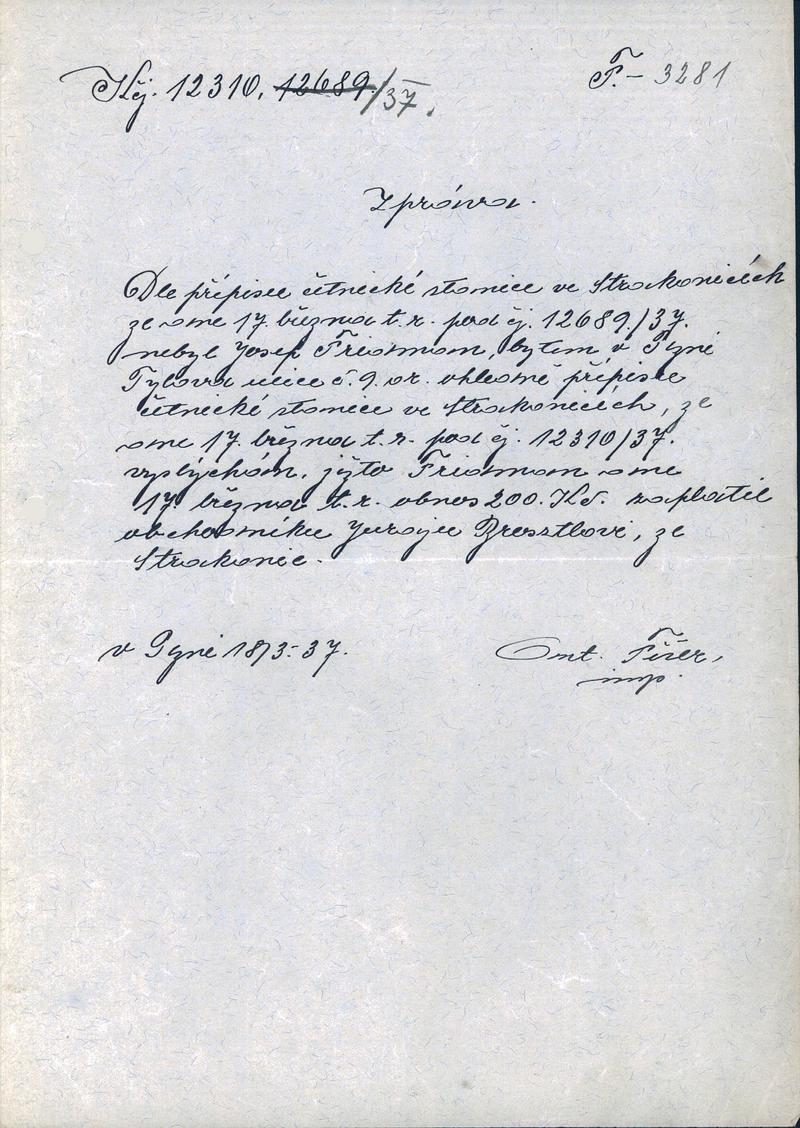 Kčj. 12310, 12689/37. F.- 3281
Zpráva.
Dle přípisu četnické stanice ve Strakonicích
ze dne 17. března t.r. pod čj. 12689/37.
nebyl Josef Fridman, bytem v Plzni
Tylova ulice č. 9. dr. ohledně přípisu
četnické stanice ve Strakonicích, ze
dne 17. března t.r. pod čj. 12310/37.
vyslýchán, jižto Fridman dne
17. března t.r. obnos 200. Kč. zaplatil
obchodníku Juraju, ze
Strakonic.
v Plzni 18/3-37. Ant. Fišer,
insp.